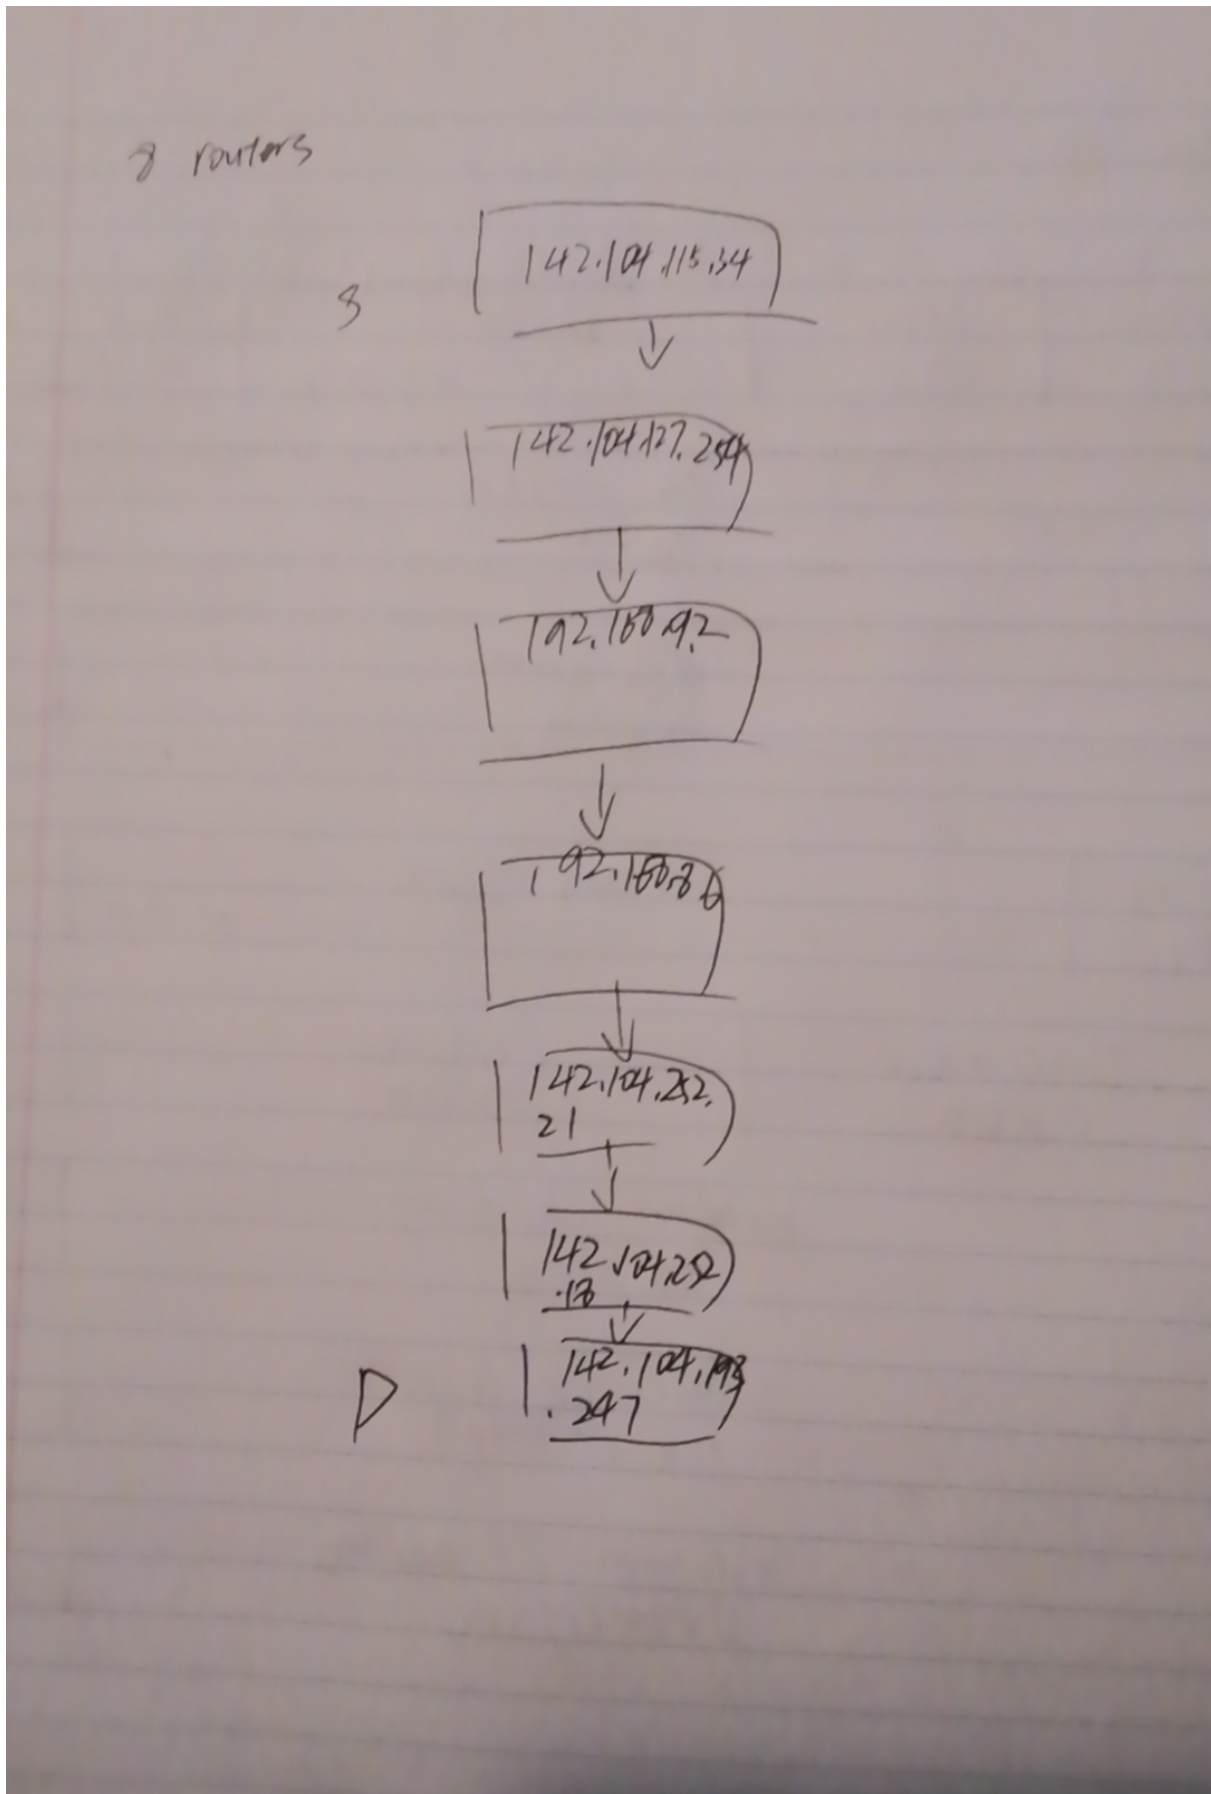 8 routers
S
142.104.115.34
142.104.127.254
192.168.9.2
192.168.8.6
142.104.252.
21
142.104.252
.18
D
142.104.193
.247